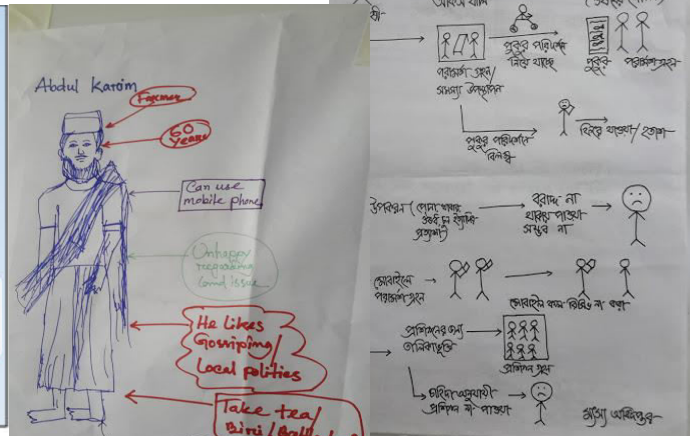 Abdul Karim
Farmer
60 years
Can use
mobile phone
Unhappy
regarding
land issue
He likes
Gossiping/
Local politics
Take tea/
Biri/
পরামর্শ গ্রহন/
সমস্যা উপস্থাপন
পুকুর পরিদর্শনে
নিয়ে যাচ্ছে
পুকুর
পরামর্শ গ্রহন
পুকুর পরিদর্শনে
বিলম্ব
ফিরে যাওয়া/হতাশ
উপকরন (পোনা, খাবার
প্রত্যাশা)
বরাদ্দ না
থাকায় পাওয়া
সম্ভব না
মোবাইলে
পরামর্শ গ্রহন
মোবাইল কল রিসিভ না করা
প্রশিক্ষনের জন্য
তালিকাভুক্ত
প্রশিক্ষন গ্রহন
চাহিদা অনুযায়ী
প্রশিক্ষন না পাওয়া
মৎস্য অধিদপ্তর